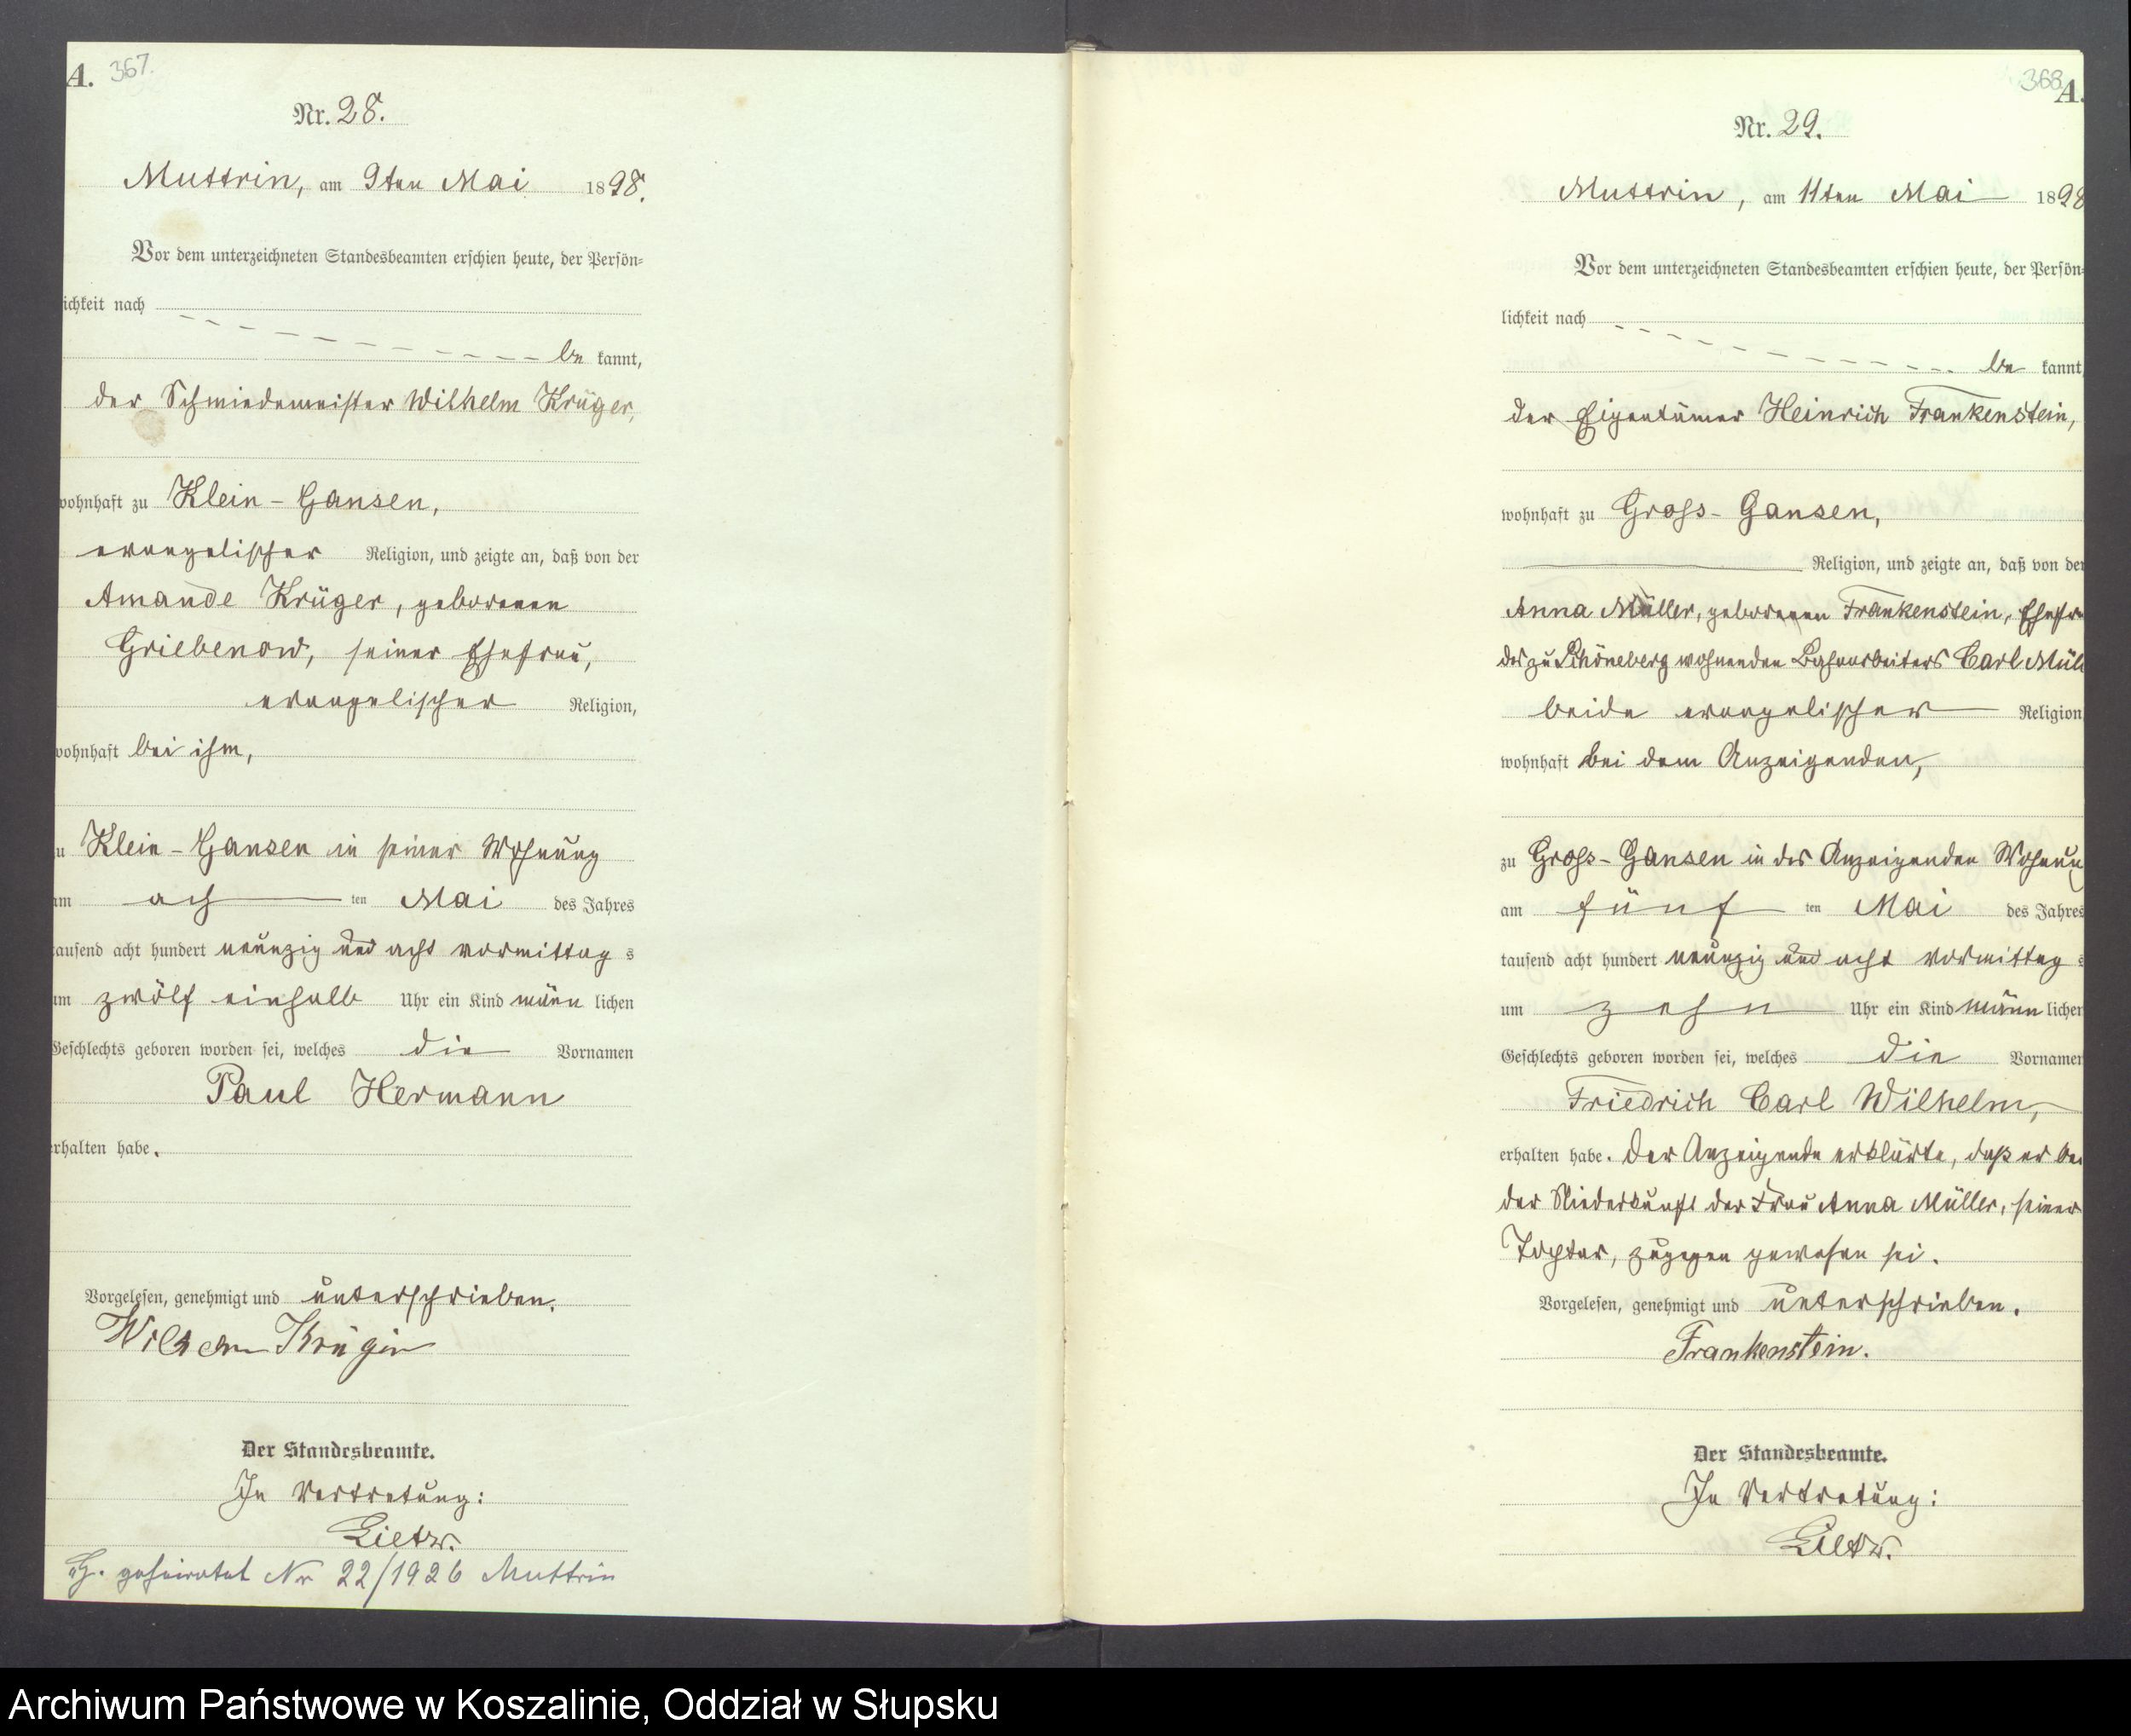 A. 367.
Nr. 28.
Muttrin, am 9ten Mai 1898.
Vor dem unterzeichneten Standesbeamten erschien heute, der Persön-
ichkeit nach
be kannt,
der Schmiedemeister Wilhelm Krüger,
wohnhaft zu Klein-Gansen,
evangelischer Religion, und zeigte an, daß von der
Amande Krüger, geborenen
Griebenow, seiner Ehefrau,
evangelischer Religion,
wohnhaft bei ihm,
zu Klein-Gansen in seiner Wohnung
am ach ten Mai des Jahres
tausend acht hundert neunzig und acht vormittag s
um zwölf einhalb Uhr ein Kind männ lichen
Geschlechts geboren worden sei, welches die Vornamen
Paul Hermann
erhalten habe.
Vorgelesen, genehmigt und unterschrieben.
Wilhelm Krüger
Der Standesbeamte.
In Vertretung:
Lietz.
geheiratet Nr 22/1926 Muttrin
368 A.
Nr. 29.
Muttrin, am 11ten Mai 1898
Vor dem unterzeichneten Standesbeamten erschien heute, der Persön-
lichkeit nach
be kannt
der Eigentümer Heinrich Frankenstein,
wohnhaft zu Gross-Gansen,
Religion, und zeigte an, daß von der
Anna Müller, geborenen Frankenstein, Ehefr
des zu Schöneberg wohnenden Bahnarbeiters Carl Müll
beide evangelischer Religion
wohnhaft bei dem Anzeigenden,
zu Gross-Gansen in des Anzeigenden Wohnung
am fünf ten Mai des Jahres
tausend acht hundert neunzig und acht vormittag s
um zehn Uhr ein Kind männ lichen
Geschlechts geboren worden sei, welches die Vornamen
Friedrich Carl Wilhelm,
erhalten habe. Der Anzeigende erklärte, daß er bei
der Niederkunft der Frau Anna Müller, seiner
Tochter, zugegen gewesen sei.
Vorgelesen, genehmigt und unterschrieben.
Frankenstein.
Der Standesbeamte.
In Vertretung:
Lietz.
Archiwum Państwowe w Koszalinie, Oddział w Słupsku